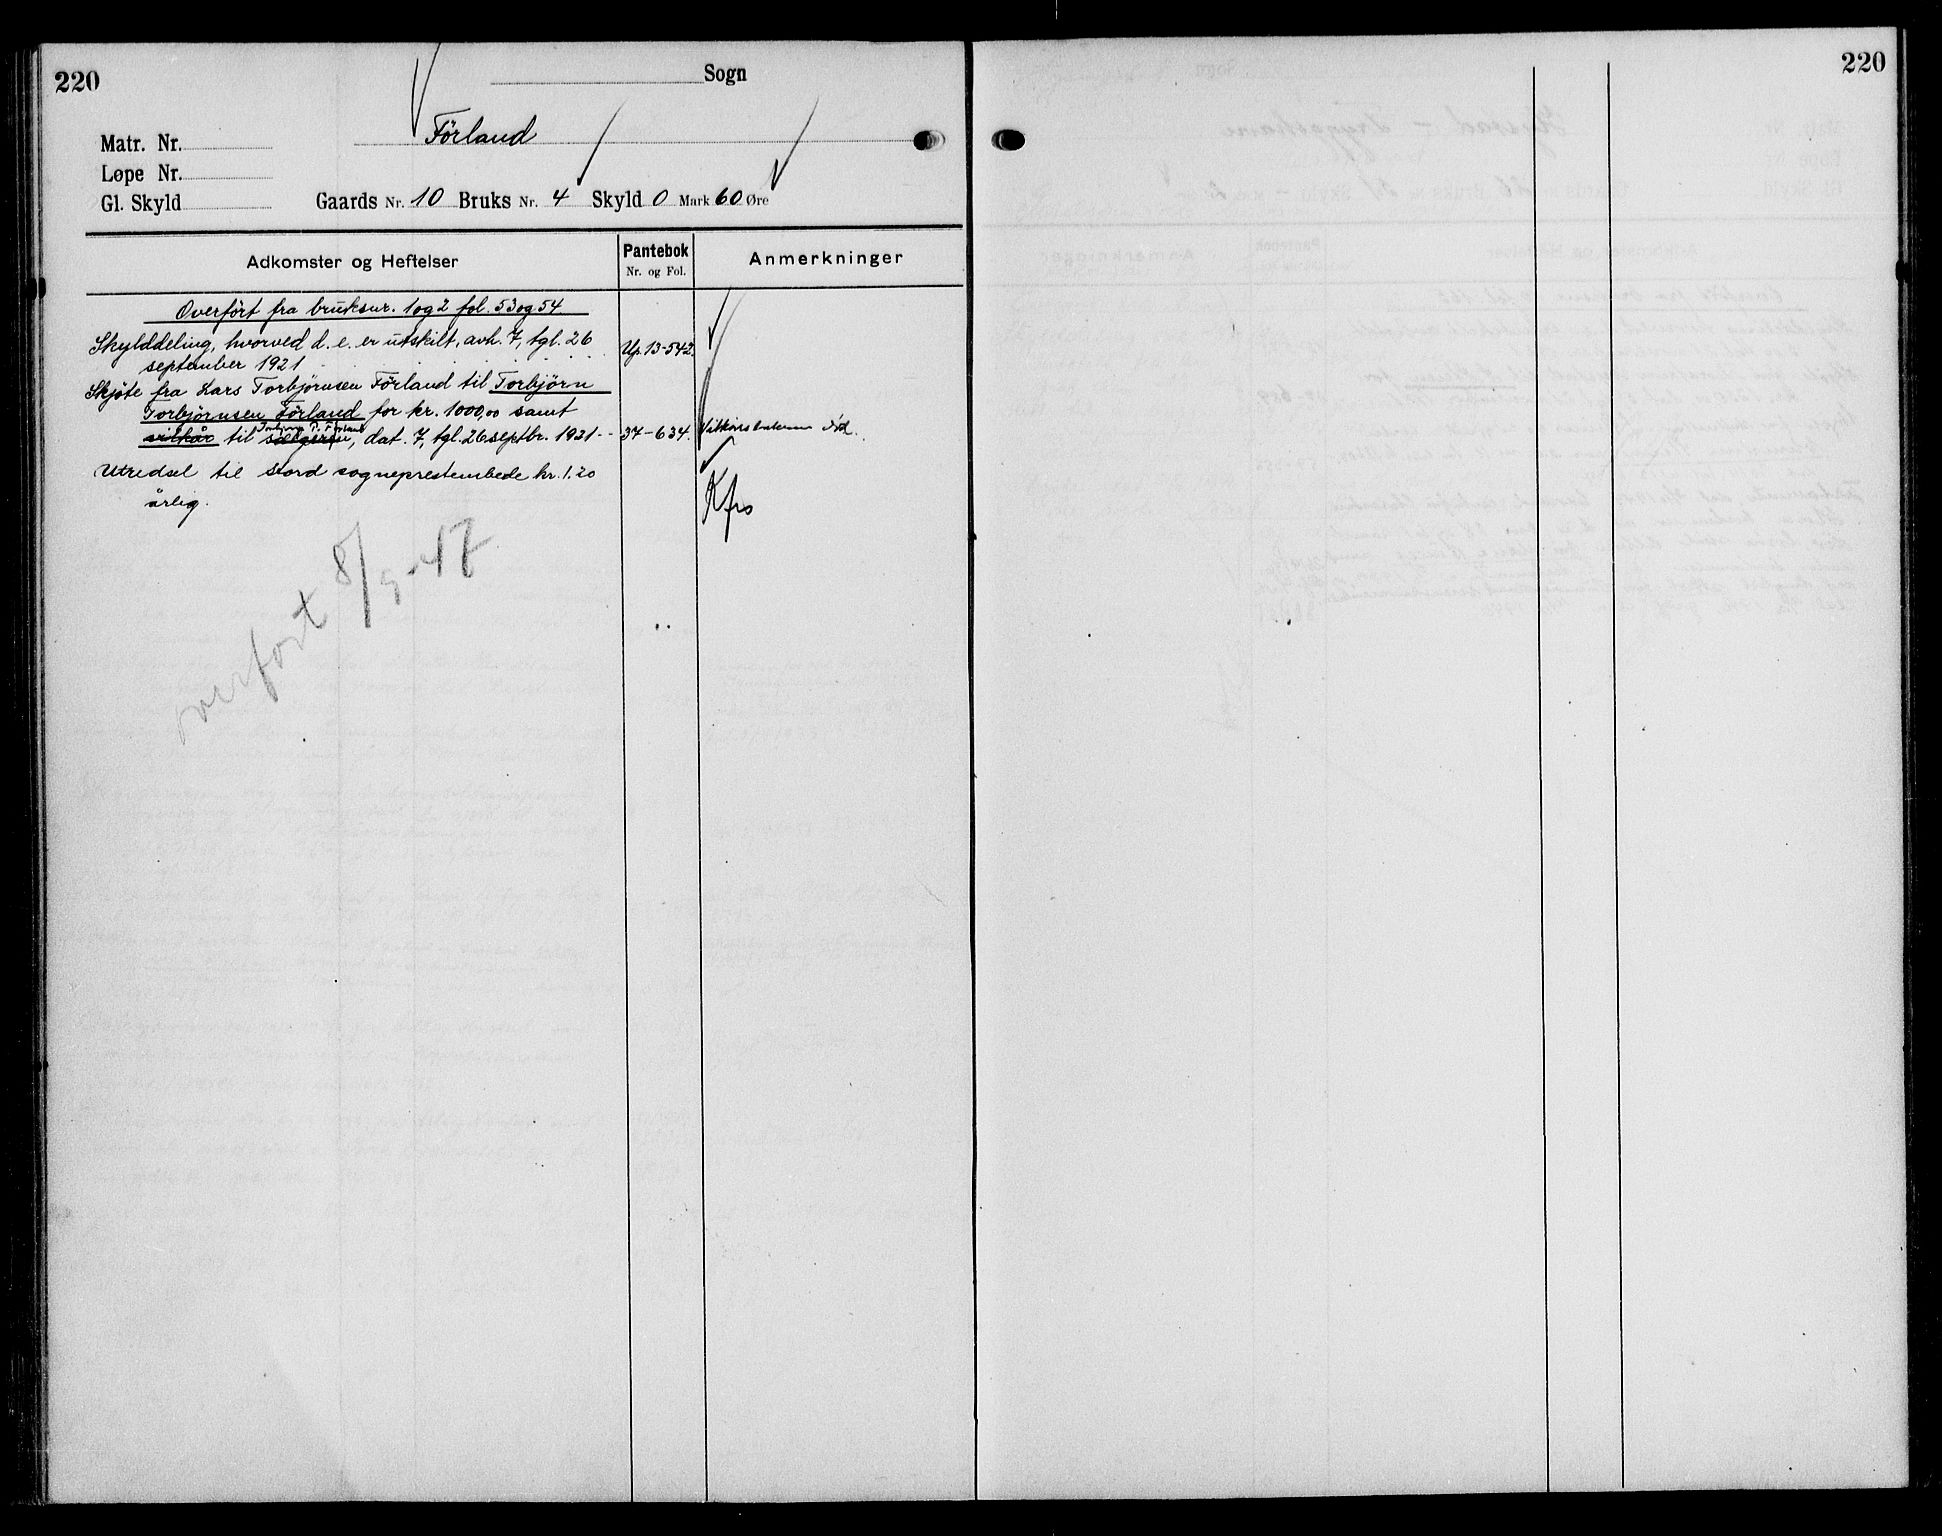 220
Sogn
Förland
Matr. Nr.
Løpe Nr.
Gl. Skyld
Gaards Nr. 10 Bruks Nr. 4 Skyld 0 Mark 60 Øre
Adkomster og Heftelser
Pantebok
Nr. og Fol.
Anmerkninger
Overført fra bruksnr. 1 og 2 fol. 53 og 54
Skylddeling, hvorved d. e. er utskilt, avh. 7, tgl. 26
september 1921
Up. 13-542.
Skjøte fra Lars Torbjørnsen Förland til Torbjörn
Torbjörnsen Förland for kr. 1000,00 samt
Torbjørn T. Förland
vilkår til sælgeren, dat. 7, tgl. 26 septbr. 1921
37-634.
død.
Utredsel til Stord sogneprestembede kr. 1.20
årlig.
overført 8/9-47
220